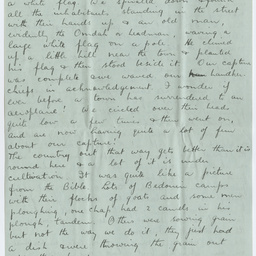 a white flag. We spiralled down & found
all the inhabitants standing in the street
with their hands up & an old man,
evidently the Omdah or headman waving a
large white flag on a pole. He climbed
up a little hill near the town & planted
his flag & then stood beside it. Our capture
was complete & we waved our handker
chiefs in acknowledgement. I wonder if
ever before a town has surrendered to an
aeroplane! We circled over their heads
quite low a few times & then went on,
and are now having quite a lot of fun
about our capture.
The country out that way gets better than it is
round here & a lot of it is under
cultivation. It was quite like a picture
from the Bible. Lots of Bedouin camps
with their flocks of goats and some men
ploughing, one chap had 2 camels in his
plough tandem. Others were sowing grain
but not the way we do it, they just hold
a dish & were throwing the grain out